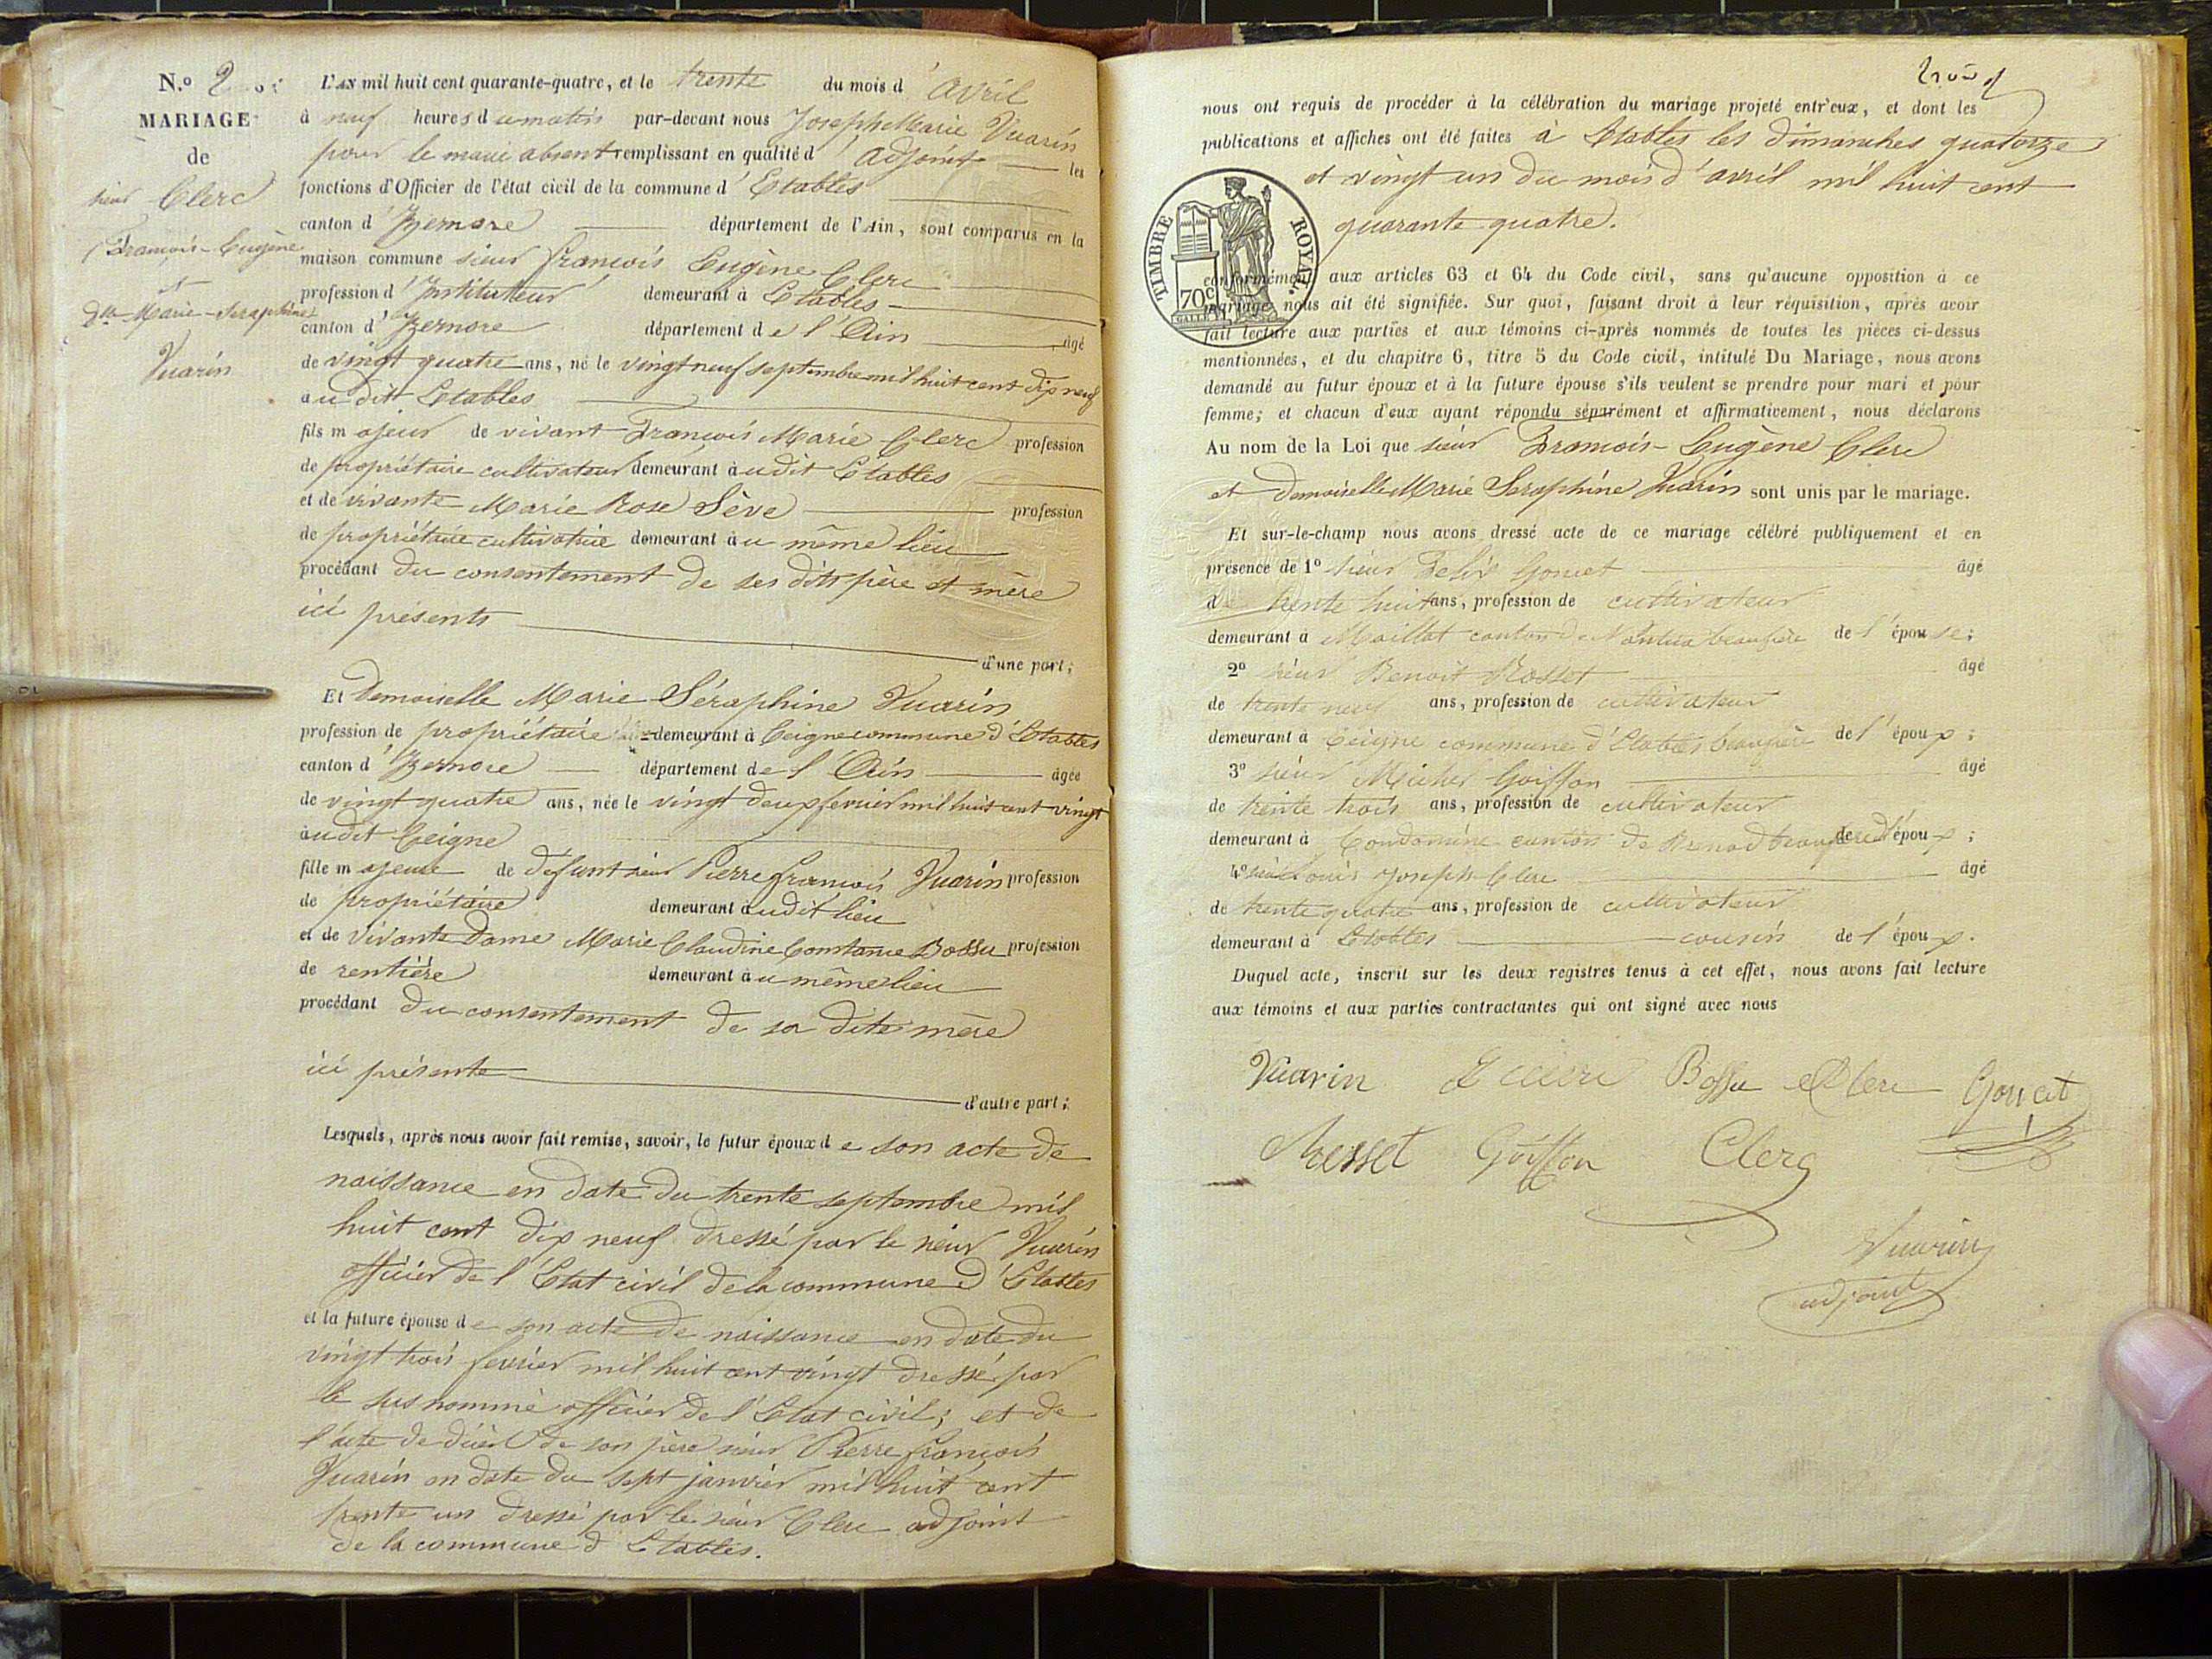 N.º 2
MARIAGE
de
sieur Clerc
François-Eugène
et
Dlle Marie-Séraphine
Vuarin
L'AN mil huit cent quarante-quatre, et le trente du mois d'Avril
à neuf heures du matin par-devant nous Joseph Marie Vuarin
pour le maire absent remplissant en qualité d'adjoint les
fonctions d'Officier de l'état civil de la commune d'Etables
canton d'Izernore département de l'Ain, sont comparus en la
maison commune sieur François Eugène Clerc
profession d'Instituteur demeurant à Etables
canton d'Izernore département de l'Ain âgé
de vingt quatre ans, né le vingt neuf septembre mil huit cent dix neuf
audit Etables
fils majeur de vivant François Marie Clerc profession
de propriétaire cultivateur demeurant audit Etables
et de vivante Marie Rose Sève profession
de propriétaire cultivatrice demeurant au même lieu
procédant du consentement de ses dits père et mère
ici présents
d'une part;
Et Demoiselle Marie Séraphine Vuarin
profession de propriétaire demeurant à Ceigne commune d'Etables
canton d'Izernore département de l'Ain âgée
de vingt quatre ans, née le vingt deux fevrier mil huit cent vingt
audit Ceigne
fille majeure de défunt sieur Pierre François Vuarin profession
de propriétaire demeurant audit lieu
et de vivante Dame Marie Claudine Constance Bossu profession
de rentière demeurant au même lieu
procédant du consentement de sa dite mère
ici présente
d'autre part;
Lesquels, après nous avoir fait remise, savoir, le futur époux de son acte de
naissance en date du trente septembre mil
huit cent dix neuf dressé par le sieur Vuarin
officier de l'Etat civil de la commune d'Etables
et la future épouse de son acte de naissance en date du
vingt trois fevrier mil huit cent vingt dressé par
le sus nommé officier de l'Etat civil; et de
l'acte de décès de son père sieur Pierre François
Vuarin en date du sept janvier mil huit cent
trente un dressé par le sieur Clerc adjoint
de la commune d'Etables.
nous ont requis de procéder à la célébration du mariage projeté entr'eux, et dont les
publications et affiches ont été faites à Etables les dimanches quatorze
et vingt un du mois d'avril mil huit cent
quarante quatre.
TIMBRE ROYAL
70c
conformément aux articles 63 et 64 du Code civil, sans qu'aucune opposition à ce
mariage nous ait été signifiée. Sur quoi, faisant droit à leur réquisition, après avoir
fait lecture aux parties et aux témoins ci-après nommés de toutes les pièces ci-dessus
mentionnées, et du chapitre 6, titre 5 du Code civil, intitulé Du Mariage, nous avons
demandé au futur époux et à la future épouse s'ils veulent se prendre pour mari et pour
femme; et chacun d'eux ayant répondu séparément et affirmativement, nous déclarons
Au nom de la Loi que sieur François-Eugène Clerc
et Demoiselle Marie Seraphine Vuarin sont unis par le mariage.
Et sur-le-champ nous avons dressé acte de ce mariage célébré publiquement et en
présence de 1º sieur Felix Goucet âgé
de trente huit ans, profession de cultivateur
demeurant à Maillat canton de Nantua beaufrère de l'épouse;
2º sieur Benoit Rosset âgé
de trente neuf ans, profession de cultivateur
demeurant à Ceigne commune d'Etables beaufrère de l'époux;
3º sieur Michel Goiffon âgé
de trente trois ans, profession de cultivateur
demeurant à Condamine canton de Brenod beaufrère de l'époux;
4º sieur Louis Joseph Clerc âgé
de trente quatre ans, profession de cultivateur
demeurant à Etables cousin de l'époux.
Duquel acte, inscrit sur les deux registres tenus à cet effet, nous avons fait lecture
aux témoins et aux parties contractantes qui ont signé avec nous
Vuarin Bossu Clerc Goucet
Rosset Goiffon Clerc
Vuarin
adjoint